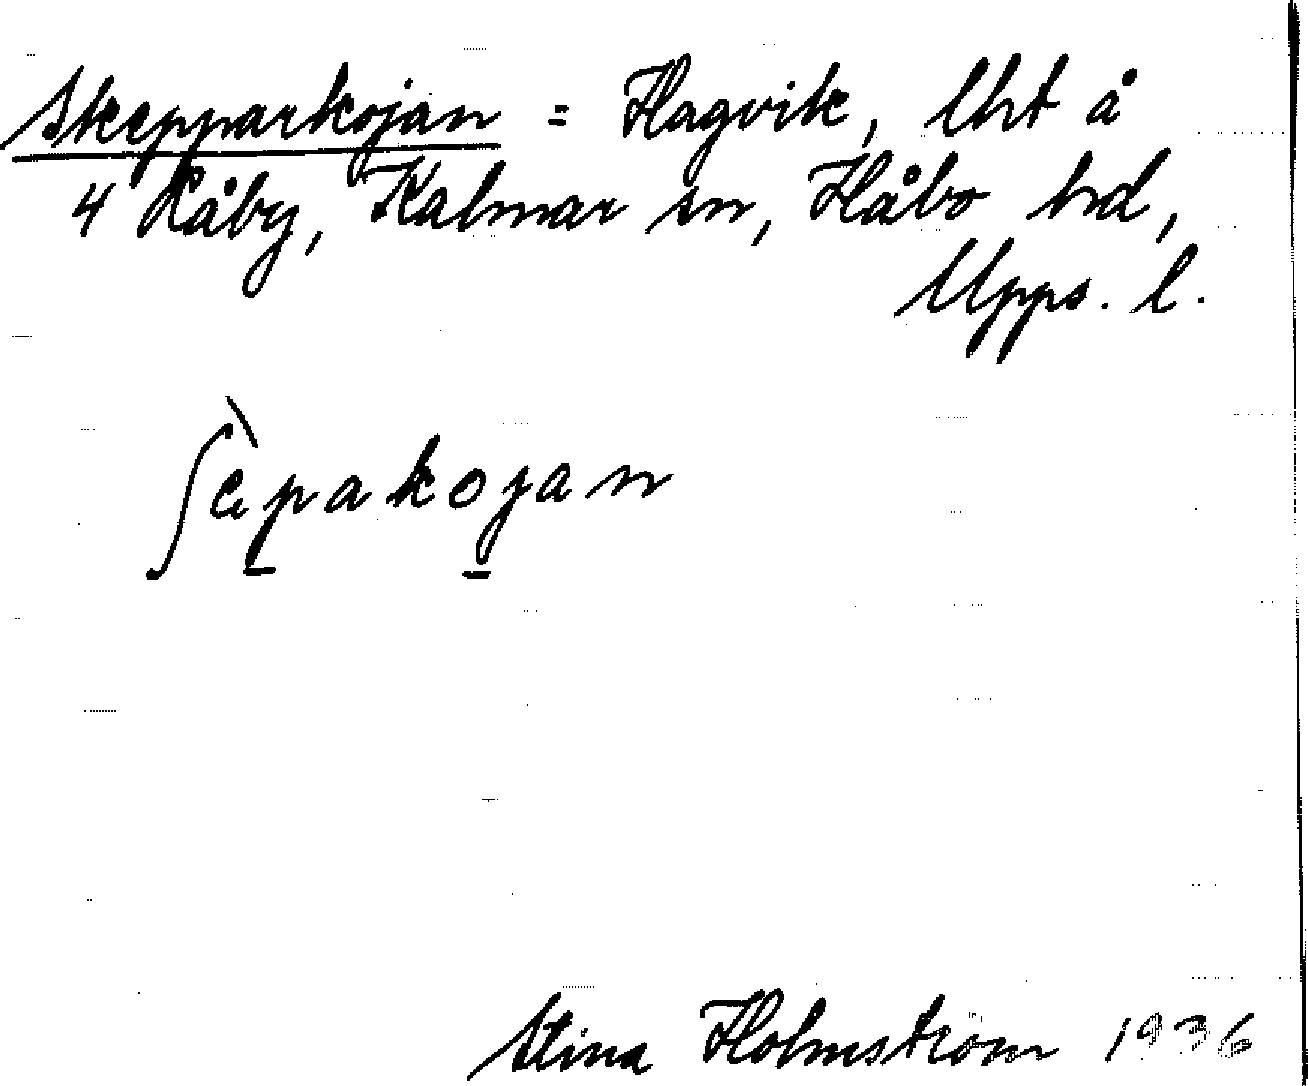 Skepparkojan = Hagvik, lht å
4 Råby, Kalmar sn, Håbo hd,
Upps. l.
ʃèpakojan
Stina Holmström 1936